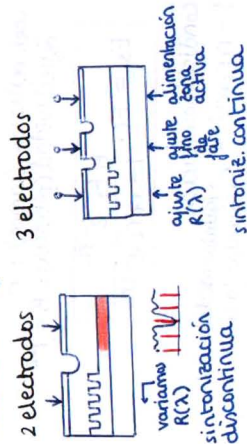 2 electrodos
variamos
R(λ)
sintonización
discontinua
3 electrodos
ajuste
R'(λ)
ajuste
fino
de
fase
alimentación
zona
activa
sintoniz. continua